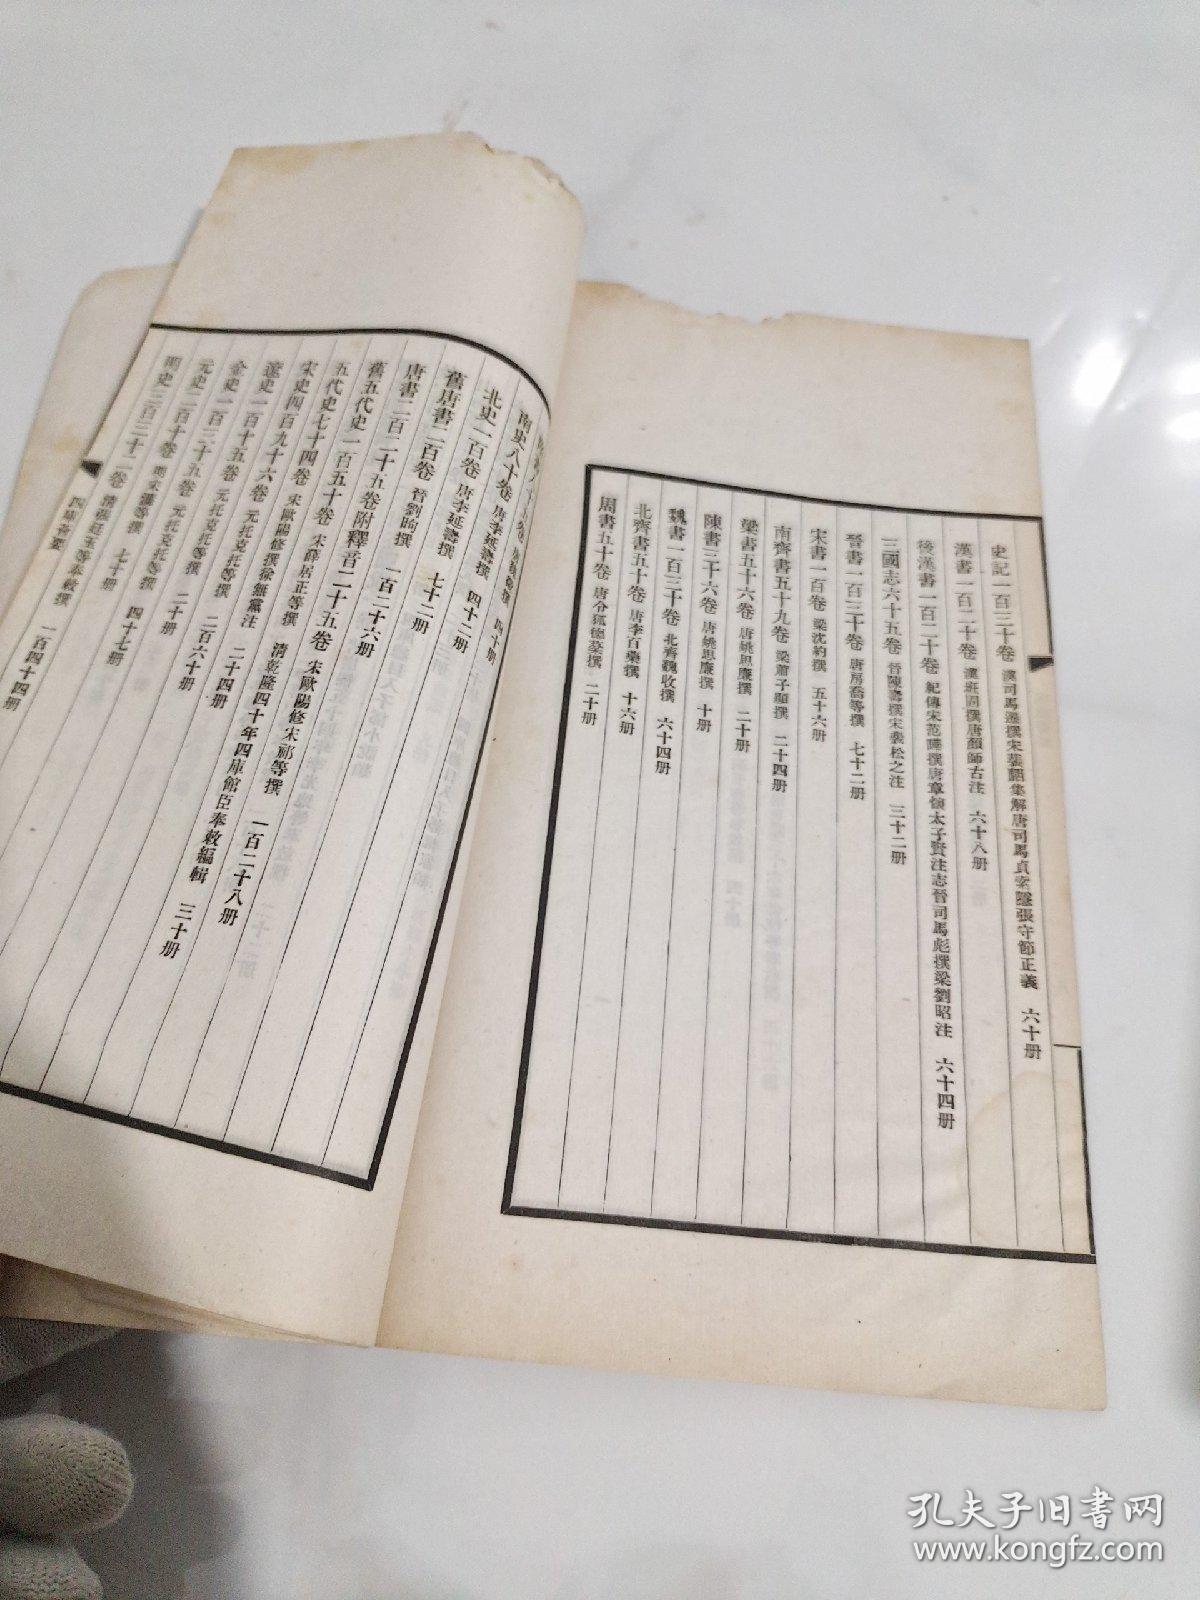 史記一百三十卷 漢司馬遷撰宋裴駰集解唐司馬貞索隱張守節正義 六十册
漢書一百二十卷 漢班固撰唐顏師古注 六十八册
後漢書一百二十卷 紀傳宋范曄撰唐章懷太子賢注志晉司馬彪撰梁劉昭注 六十四册
三國志六十五卷 晉陳壽撰宋裴松之注 三十二册
晉書一百三十卷 唐房喬等撰 七十二册
宋書一百卷 梁沈約撰 五十六册
南齊書五十九卷 梁蕭子顯撰 二十四册
梁書五十六卷 唐姚思廉撰 二十册
陳書三十六卷 唐姚思廉撰 十册
魏書一百三十卷 北齊魏收撰 六十四册
北齊書五十卷 唐李百藥撰 十六册
周書五十卷 唐令狐德棻撰 二十册
南史八十卷 唐李延壽撰 四十册
北史一百卷 唐李延壽撰 四十二册
舊唐書二百卷 晉劉昫撰 七十二册
唐書二百二十五卷附釋音二十五卷 宋歐陽修宋祁等撰 一百二十六册
舊五代史一百五十卷 宋薛居正等撰 清乾隆四十年四庫館臣奉敕編輯 三十册
五代史七十四卷 宋歐陽修撰徐無黨注 二十四册
宋史四百九十六卷 元托克托等撰 二百六十册
遼史一百十五卷 元托克托等撰 二十册
金史一百三十五卷 元托克托等撰 四十七册
元史二百十卷 明宋濂等撰 七十册
明史三百三十二卷 清張廷玉等奉敕撰 一百四十四册
四庫薈要
孔夫子旧书网
www.kongfz.com